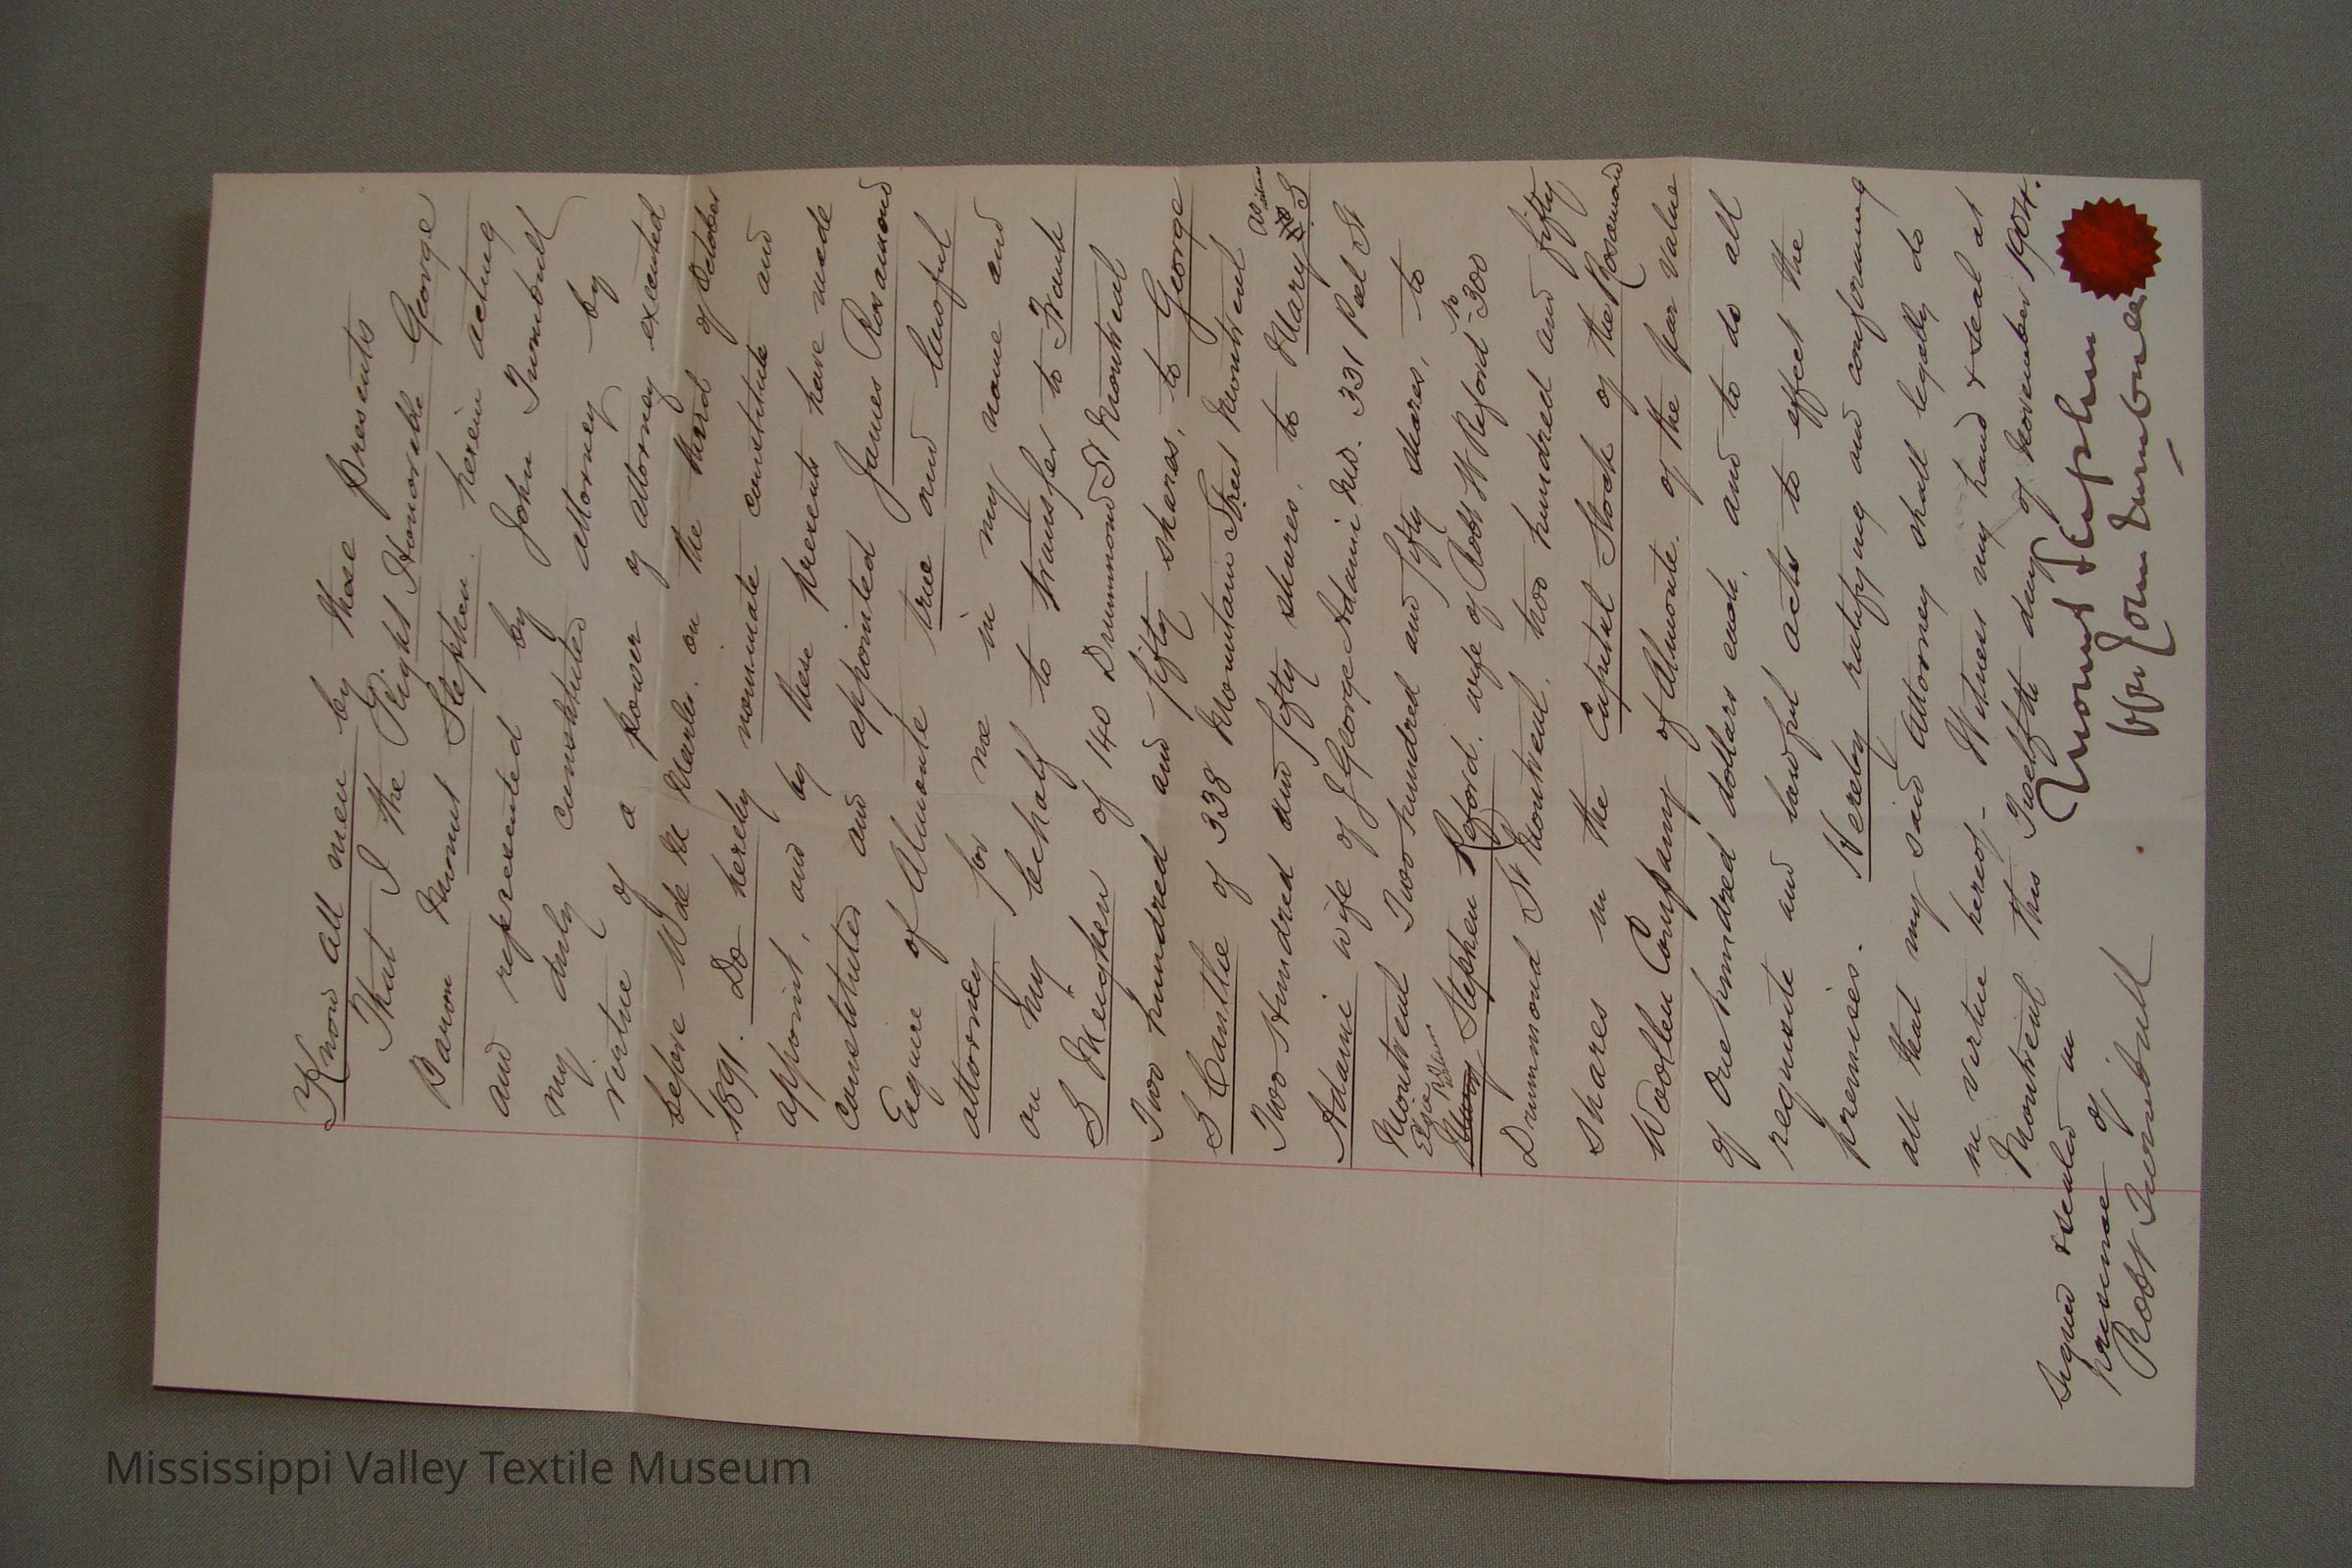 Know all men by these presents
That I the Right Honorable George
Baron Mount Stephen. herein acting
and represented by John Turnbull
my duly constituted attorney by
virtue of a power of attorney executed
before W de M Marler. on the third of October
1891. Do hereby nominate constitute and
appoint, and by these presents have made
constituted and appointed James Rosamond
Esquire of Almonte true and lawful
attorney for me in my name and
on my behalf to transfer to Frank
S Meighen of 140 Drummond St Montreal
Two hundred and fifty shares, to George
S Cantlie of 338 Mountain Street Montreal
Two Hundred and fifty shares. to Mary S
Adami wife of J George Adami MD. 331 Peel St
Montreal Two hundred and fifty shares, to
Elsie
Stephen Reford. wife of Robt W Reford - No 300
Drummond St Montreal. two hundred and fifty
shares in the Capital Stock of the Rosamond
Woollen Company of Almonte. of the par value
of One hundred dollars each, and to do all
requisite and lawful acts to effect the
premises. Hereby ratifying and confirming
all that my said Attorney shall legally do
in virtue hereof - Witness my hand & seal at
Montreal this Twelfth day of November 1904.
Mount Stephen
Signed & sealed in
presence of
by John Turnbull
Robt Turnbull
Mississippi Valley Textile Museum